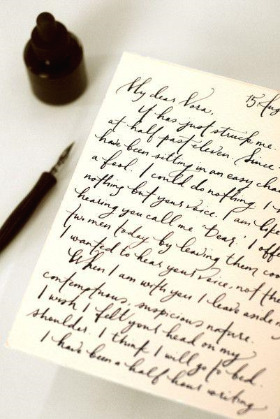 15 Aug
My dear Nora,
It has just struck me.
at half past eleven. Since
have been sitting in an easy cha
a fool. I could do nothing. I
nothing but your voice. I am li
hearing you call me 'Dear.' I off
two men today by leaving them coo
wanted to hear your voice, not th
When I am with you I leave aside
contemptuous, suspicious nature.
I wish I felt your head on my
shoulder. I think I will go to bed.
I have been a half-hour writing